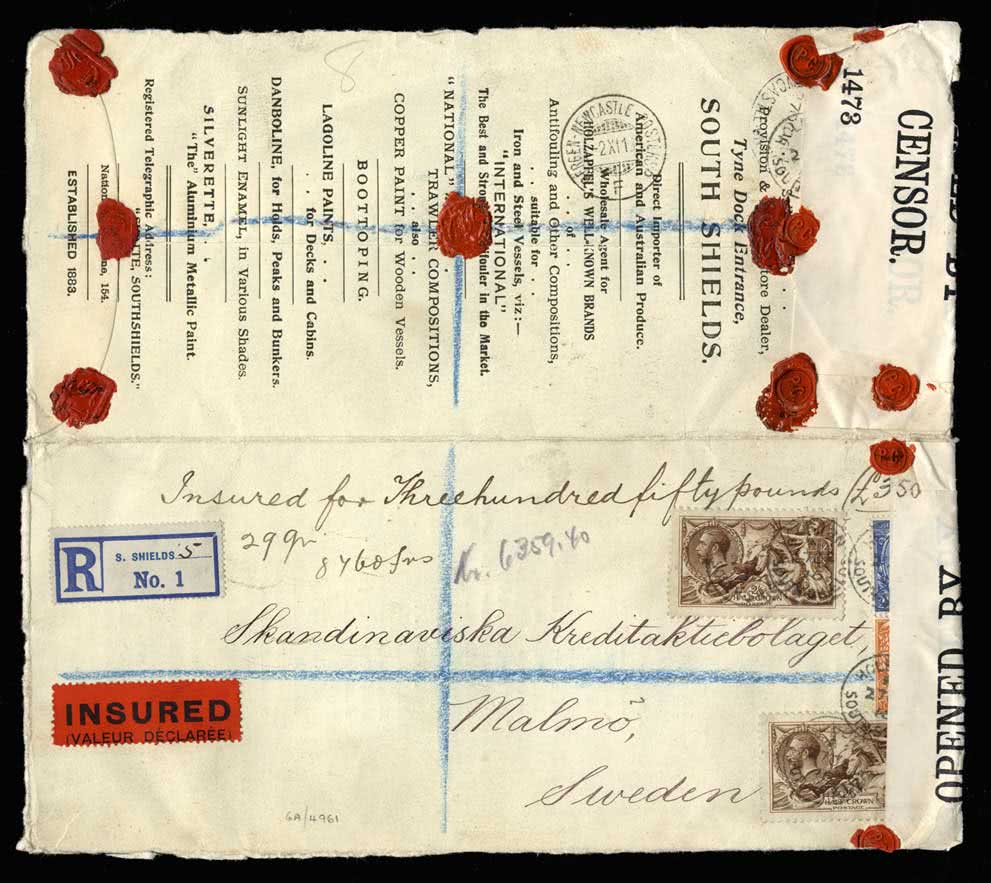 Insured for Threehundredfiftypounds (£350
R
S. SHIELDS 5
No. 1
29 gr
8460 frs
Kr. 6359.40
Skandinaviska Kreditaktiebolaget,
Malmö,
Sweden
INSURED
(VALEUR DÉCLARÉE)
HALF CROWN
POSTAGE
HALF CROWN
POSTAGE
GA/4961
OPENED BY
CENSOR.
1473
8
Provision & Store Dealer,
Tyne Dock Entrance,
SOUTH SHIELDS.
Direct Importer of
American and Australian Produce.
Wholesale Agent for
HOLZAPFEL'S WELL-KNOWN BRANDS
. . of . .
Antifouling and Other Compositions,
. . suitable for . .
Iron and Steel Vessels, viz:—
"INTERNATIONAL"
The Best and Strongest Antifouler in the Market.
"NATIONAL" TRAWLER COMPOSITIONS,
. . also . .
COPPER PAINT for Wooden Vessels.
BOOTTOPING.
LAGOLINE PAINTS, . .
. . for Decks and Cabins.
DANBOLINE, for Holds, Peaks and Bunkers.
SUNLIGHT ENAMEL, in Various Shades.
SILVERETTE, . .
"The" Aluminium Metallic Paint.
Registered Telegraphic Address:
SOUTHSHIELDS."
154.
ESTABLISHED 1883.
BERGEN-NEWCASTLE POSTEXP.